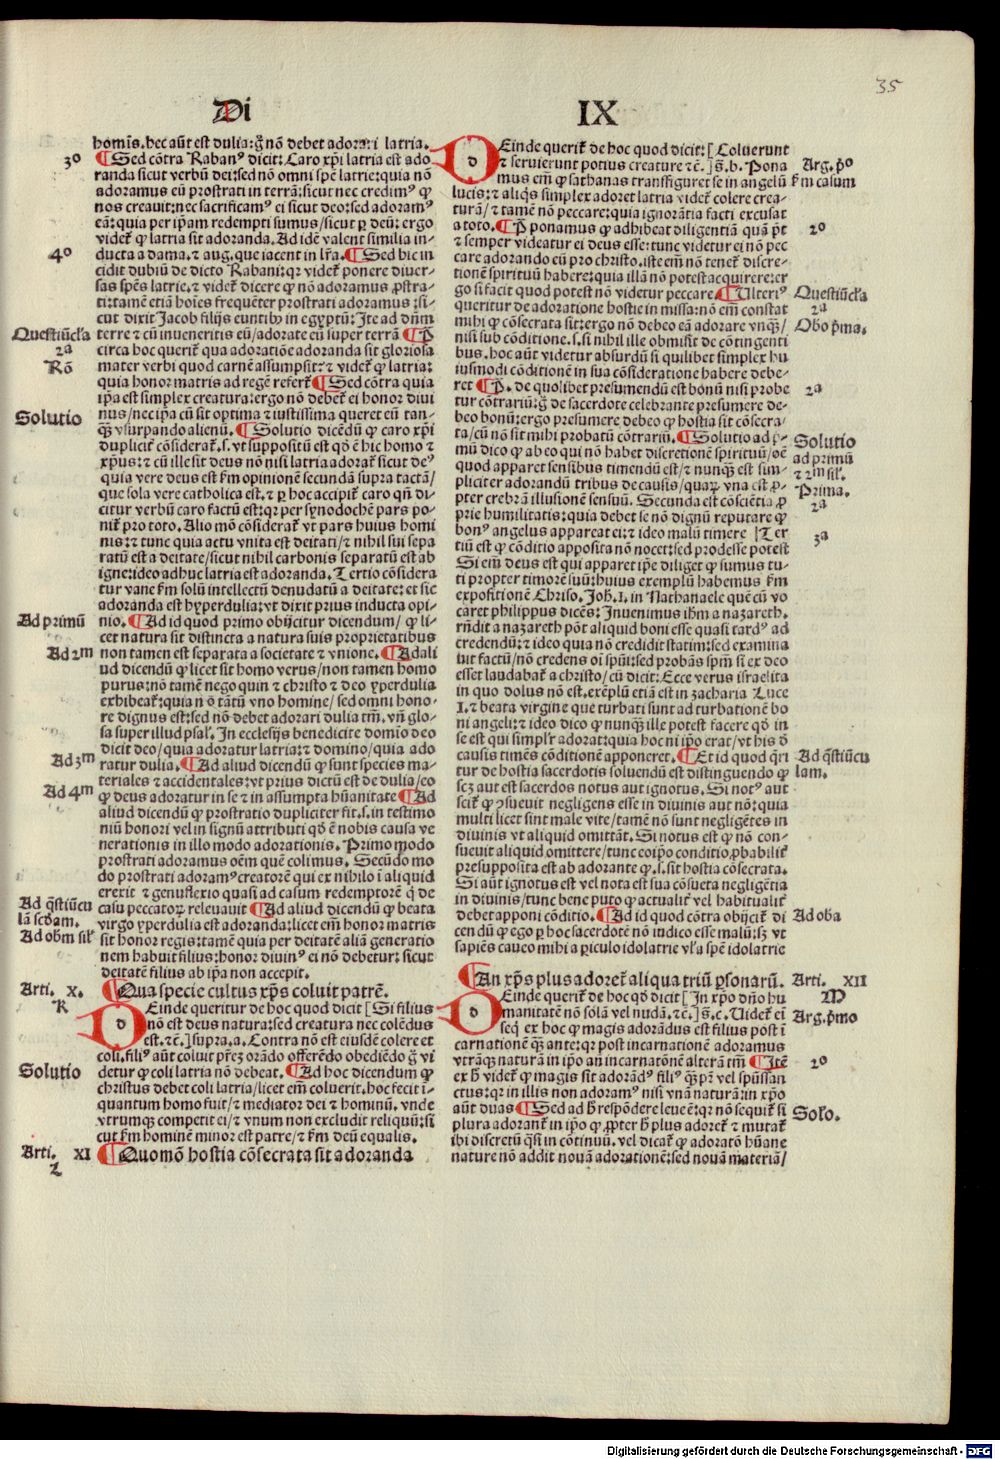 35
Di
IX
homīs. hec aūt est dulia: gͦ nō debet adorari latria.
3º
¶Sed cōtra Rabanꝰ dicit: Caro xp̄i latria est ado
randa sicut verbū dei: sed nō omni spē latrie: quia nō
adoramus eū prostrati in terrā: sicut nec credimꝰ ꝙ
nos creauit: nec sacrificamꝰ ei sicut deo: sed adoramꝰ
eā: quia per ip̄am redempti sumus/sicut ꝑ deū: ergo
videt̄ ꝙ latria sit adoranda. Ad idē valent similia in-
4º
ducta a dama. ⁊ aug. que iacent in lr̄a. ¶Sed hic in
cidit dubiū de dicto Rabani: qꝛ videt̄ ponere diuer-
sas spēs latrie. ⁊ videt̄ dicere ꝙ nō adoramus ꝓstra-
ti: tamē etiā hoīes frequēter prostrati adoramus: si-
cut dixit Jacob filijs euntibꝰ in egyptū: Ite ad dn̄m
Questiūcl̄a
terre ⁊ cū inueneritis eū/adorate eū super terrā ¶P̄
2ª
circa hoc querit̄ qua adoratiōe adoranda sit gloriosa
Rō
mater verbi quod carnē assumpsit: ⁊ videt̄ ꝙ latria:
quia honor matris ad regē refert̄ ¶Sed cōtra quia
ip̄a est simplex creatura: ergo nō debet̄ ei honor diui
Solutio
nus/nec ipa cū sit optima ⁊ iustissima queret eū tan-
ꝙ̄ vsurpando alienū. ¶Solutio dicēdū ꝙ caro xp̄i
duplicit̄ cōsiderat̄. s. vt suppositū est qd̄ ē hic homo ⁊
xp̄us: ⁊ cū ille sit deus nō nisi latria adorat̄ sicut deꝰ
quia vere deus est f̄m opinionē secundā supra tactā/
que sola vere catholica est. ⁊ ꝑ hoc accipit̄ caro qn̄ di-
citur verbū caro factū est: qꝛ per synodochē pars po-
nit̄ pro toto. Alio mō cōsiderat̄ vt pars huius homi
nis: ⁊ tunc quia actu vnita est deitati/⁊ nihil sui sepa
ratū est a deitate/sicut nihil carbonis separatū est ab
igne: ideo adhuc latria est adoranda. Tertio cōsidera
tur vane f̄m solū intellectū denudatū a deitate: et sic
adoranda est hyperdulia: vt dixit prius inducta opi-
Ad primū
nio. ¶Ad id quod primo obijcitur dicendum/ ꝙ li-
cet natura sit distincta a natura suis proprietatibus
Ad 2m
non tamen est separata a societate ⁊ vnione. ¶Ad ali
ud dicendū ꝙ licet sit homo verus/non tamen homo
purus: nō tamē nego quin ⁊ christo ⁊ deo yperdulia
exhibeat̄: quia nō tātū vno homine/ sed omni hono-
re dignus est: sed nō debet adorari dulia tm̄. vn̄ glo-
sa super illud psal̄. In ecclesijs benedicite domīo deo
dicit deo/quia adoratur latria: ⁊ domino/quia ado
Ad 3m
ratur dulia. ¶Ad aliud dicendū ꝙ sunt species ma-
teriales ⁊ accidentales: vt prius dictū est de dulia/eo
Ad 4m
ꝙ deus adoratur in se ⁊ in assumpta hūanitate ¶Ad
aliud dicendū ꝙ prostratio dupliciter fit. s. in testimo
niū honori vel in signū attributi qd̄ ē nobis causa ve
nerationis in illo modo adorationis. Primo modo
prostrati adoramus oēm quē colimus. Secūdo mo
do prostrati adoramꝰ creatorē qui ex nihilo ē aliquid
erexit ⁊ genuflexio quasi ad casum redemptorē q̄ de
Ad q̄stiūcu
lā scd̄am.
casu peccatoꝝ releuauit ¶Ad aliud dicendū ꝙ beata
virgo yperdulia est adoranda: licet em̄ honor matris
Ad obm̄ sil̄
sit honor regis: tamē quia per deitatē aliā generatio
nem habuit filius: honor diuinꝰ ei nō debetur: sicut
deitatē filius ab ip̄a non accepit.
Arti. X.
¶Qua specie cultus xp̄s coluit patrē.
K
DEinde queritur de hoc quod dicit [Si filius
nō est deus natura: sed creatura nec colēdus
est. ⁊c.] supra. a. Contra nō est eiusdē colere et
coli. filiꝰ aūt coluit pr̄eꝫ orādo offerēdo obediēdo gͦ vi
Solutio
detur ꝙ coli latria nō debeat. ¶Ad hoc dicendum ꝙ
christus debet coli latria/licet em̄ coluerit. hoc fecit i-
quantum homo fuit/⁊ mediator dei ⁊ hominū. vnde
vtrumque competit ei/⁊ vnum non excludit reliquū: si
cut f̄m hominē minor est patre/⁊ f̄m deū equalis.
Arti. XI
¶Quomō hostia cōsecrata sit adoranda
L
DEinde querit̄ de hoc quod dicit: [Coluerunt
Arg. pͦo
⁊ seruierunt potius creature ⁊c.] s̄. b. Pona
f̄m casum
mus em̄ ꝙ sathanas transfiguret se in angelū
lucis: ⁊ aliqͥs simplex adoret latria videt̄ colere crea-
turā/⁊ tamē nō peccare: quia ignorātia facti excusat
2º
a toto. ¶P̄ ponamus ꝙ adhibeat diligentiā quā pōt
⁊ semper videatur ei deus esse: tunc videtur ei nō pec
care adorando eū pro christo. iste em̄ nō tenet̄ discre-
tionē spirituū habere: quia illā nō potest acquirere: er
Questiūcl̄a
go si facit quod potest nō videtur peccare. ¶Ulteriꝰ
2ª
queritur de adoratione hostie in missa: nō em̄ constat
Obo p̄ma.
mihi ꝙ cōsecrata sit: ergo nō debeo eā adorare vnꝙ̄/
nisi sub cōditione. s. si nihil ille obmisit de cōtingenti
bus. hoc aūt videtur absurdū si quilibet simplex hu
iusmodi cōditionē in sua cōsideratione habere debe-
2ª
ret ¶P̄. de quolibet presumendū est bonū nisi probe
tur cōtrariū: gͦ de sacerdote celebrante presumere de-
beo bonū: ergo presumere debeo ꝙ hostia sit cōsecra-
ta/cū nō sit mihi probatū cōtrariū. ¶Solutio ad pͥ-
Solutio
ad primū
mū dico ꝙ ab eo qui nō habet discretionē spirituū/oē
⁊ 2m sil̄.
quod apparet sensibus timendū est/⁊ nunꝙ̄ est sim-
pliciter adorandū tribus de causis/quaꝝ vna est ꝓ-
Prima.
pter crebrā illusionē sensuū. Secunda est cōsciētia ꝓ
2ª
prie humilitatis: quia debet se nō dignū reputare ꝙ
bonꝰ angelus appareat ei: ⁊ ideo malū timere Ter
3ª
tiū est ꝙ cōditio apposita nō nocet: sed prodesse potest
Si em̄ deus est qui apparet ip̄e diliget ꝙ sumus tu-
ti propter timorē suū: huius exemplū habemus f̄m
expositionē Chriso. Joh̄. I. in Nathanaele quē cū vo
caret philippus dicēs: Inuenimus ih̄m a nazareth.
rn̄dit a nazareth pōt aliquid boni esse quasi tardꝰ ad
credendū: ⁊ ideo quia nō credidit statim: sed examina
uit factū/nō credens oi spūi: sed probās spm̄ si ex deo
esset laudabat̄ a christo/cū dicit: Ecce verus israelita
in quo dolus nō est. exēplū etiā est in zacharia Luce
I. ⁊ beata virgine que turbati sunt ad turbationē bo
ni angeli: ⁊ ideo dico ꝙ nunꝙ̄ ille potest facere qd̄ in
se est qui simpl̄r adorat: quia hoc ni ip̄o erat/vt his d̄
Ad q̄stiūcu
causis timēs cōditionē apponeret. ¶Et id quod q̄ri
lam.
tur de hostia sacerdotis soluendū est distinguendo ꝙ
scꝫ aut est sacerdos notus aut ignotus. Si notꝰ aut
scit̄ ꝙ ↄsueuit negligens esse in diuinis aut nō: quia
multi licet sint male vite/tamē nō sunt negligētes in
diuinis vt aliquid omittāt. Si notus est ꝙ nō con-
sueuit aliquid omittere/tunc eoip̄o conditio ꝓbabilit̄
presupposita est ab adorante ꝙ. s. sit hostia cōsecrata.
Si aūt ignotus est vel nota est sua cōsueta negligētia
in diuinis/tunc bene puto ꝙ actualit̄ vel habitualit̄
Ad oba
debet apponi cōditio. ¶Ad id quod cōtra obijcit̄ di
cendū ꝙ ego ꝑ hoc sacerdotē nō indico esse malū: sꝫ vt
sapiēs caueo mihi a ꝑiculo idolatrie vl̄ a spē idolatrie
Arti. XII
¶An xp̄s plus adoret̄ aliqua triū ꝑsonarū.
M
DEinde querit̄ de hoc qd̄ dicit [In xp̄o dn̄o hu
Arg. pͥmo
manitatē nō solā vel nudā. ⁊c.] s̄. c. Videt̄ ei
seq̄ ex hoc ꝙ magis adorādus est filius post ī
carnationē ꝙ̄ ante: qꝛ post incarnationē adoramus
2º
vtrāꝙ naturā in ip̄o an̄ incarnatōnē alterā tm̄ ¶Itē
ex h̄ videt̄ ꝙ magis sit adorādꝰ filiꝰ ꝙ̄ pr̄ vel spūssan
ctus: qꝛ in illis non adoramꝰ nisi vnā naturā: in xp̄o
Solo.
aūt duas ¶Sed ad h̄ respōdere leue ē: qꝛ nō sequit̄ si
plura adorant̄ in ip̄o ꝙ ꝓpter h̄ plus adoret̄ ⁊ mutat̄
ibi discretū q̄si in cōtinuū. vel dicat̄ ꝙ adoratō hūane
nature nō addit nouā adorationē: sed nouā materiā/
Digitalisierung gefördert durch die Deutsche Forschungsgemeinschaft - DFG